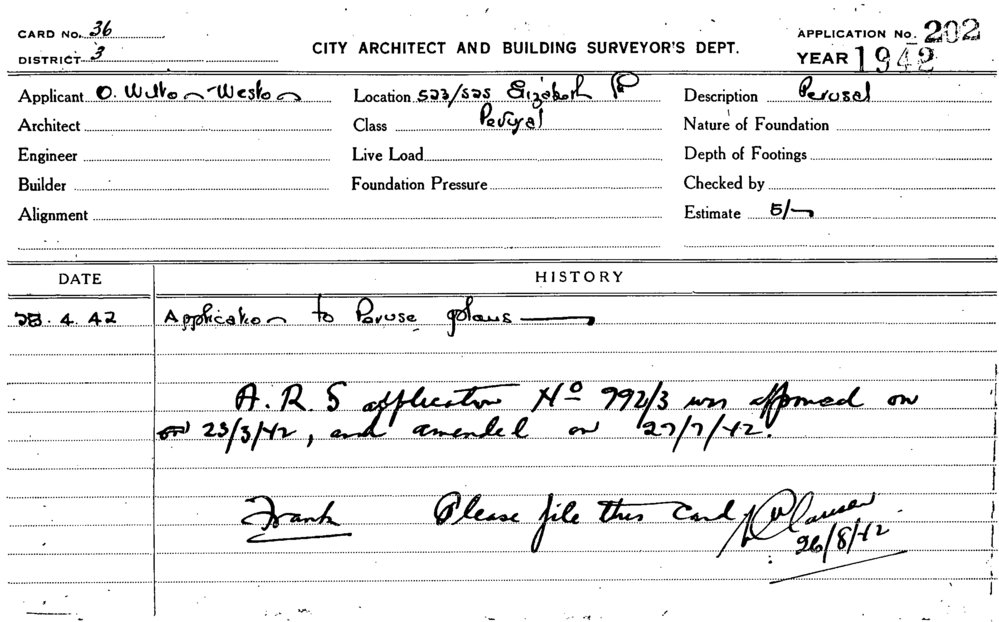 CARD No. 36
DISTRICT 3
CITY ARCHITECT AND BUILDING SURVEYOR'S DEPT.
APPLICATION No. 202
YEAR 1942
Applicant O. Wilton-Weston Location 523/525 Elizabeth Description Perusal
Architect Class Perusal Nature of Foundation
Engineer Live Load Depth of Footings
Builder Foundation Pressure Checked by
Alignment Estimate 5/-
DATE HISTORY
28.4.42 Application to Peruse plans
A.R.S application No 992/3 was approved on
on 23/3/42, and amended on 27/7/42.
Frank Please file this card
26/8/42